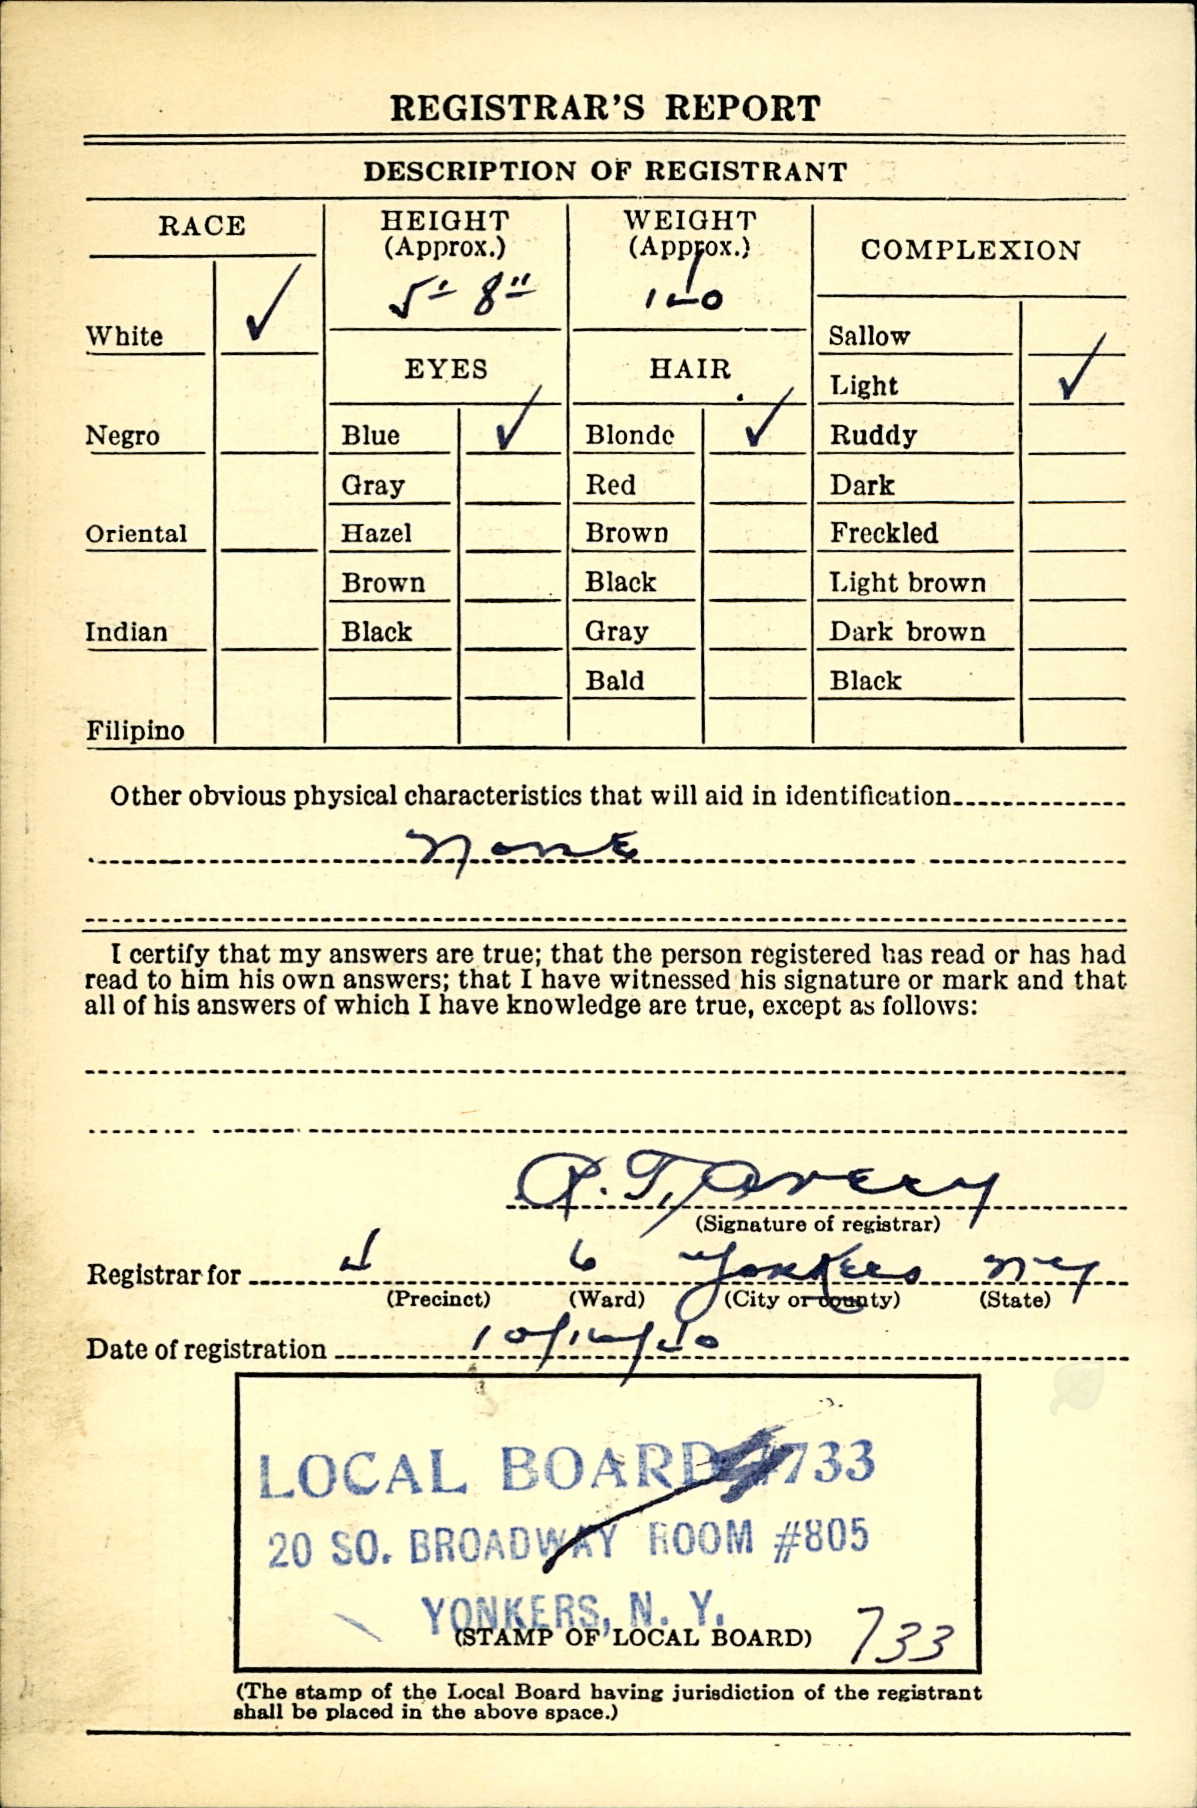 REGISTRAR'S REPORT
DESCRIPTION OF REGISTRANT
RACE
HEIGHT
(Approx.)
WEIGHT
(Approx.)
COMPLEXION
5' 8"
White ✓
EYES
HAIR
Sallow
Light ✓
Negro
Blue ✓
Blonde ✓
Ruddy
Gray
Red
Dark
Oriental
Hazel
Brown
Freckled
Brown
Black
Light brown
Indian
Black
Gray
Dark brown
Bald
Black
Filipino
Other obvious physical characteristics that will aid in identification
None
I certify that my answers are true; that the person registered has read or has had
read to him his own answers; that I have witnessed his signature or mark and that
all of his answers of which I have knowledge are true, except as follows:
R. T. Avery
(Signature of registrar)
Registrar for 6 Yonkers NY
(Precinct) (Ward) (City or county) (State)
Date of registration 10/16/40
LOCAL BOARD #733
20 SO. BROADWAY ROOM #805
YONKERS, N. Y.
(STAMP OF LOCAL BOARD) 733
(The stamp of the Local Board having jurisdiction of the registrant
shall be placed in the above space.)